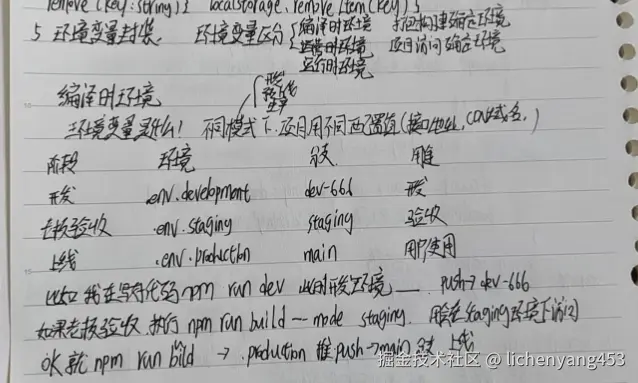 remove(key:string){ localstorage.removeItem(key)}
5 环境变量封装. 环境变量区分 编译时环境 打包构建确定环境
运行时环境 项目访问确定环境
运行时环境
开发
线
编译时环境
环境变量是什么! 不同模式下.项目用不同配置值(接口地址, CDN域名,)
阶段 环境 分支
开发 .env.development dev-666 开发
验收 .env.staging staging 验收
上线 .env.production main 用户使用
比如 我在写好代码npm run dev 此时开发环境 —— push→dev-666
如果老板验收 执行npm run build --mode staging. 在staging环境下
OK 就 npm run bild → .production 推push→main 上线
掘金技术社区 @ lichenyang453